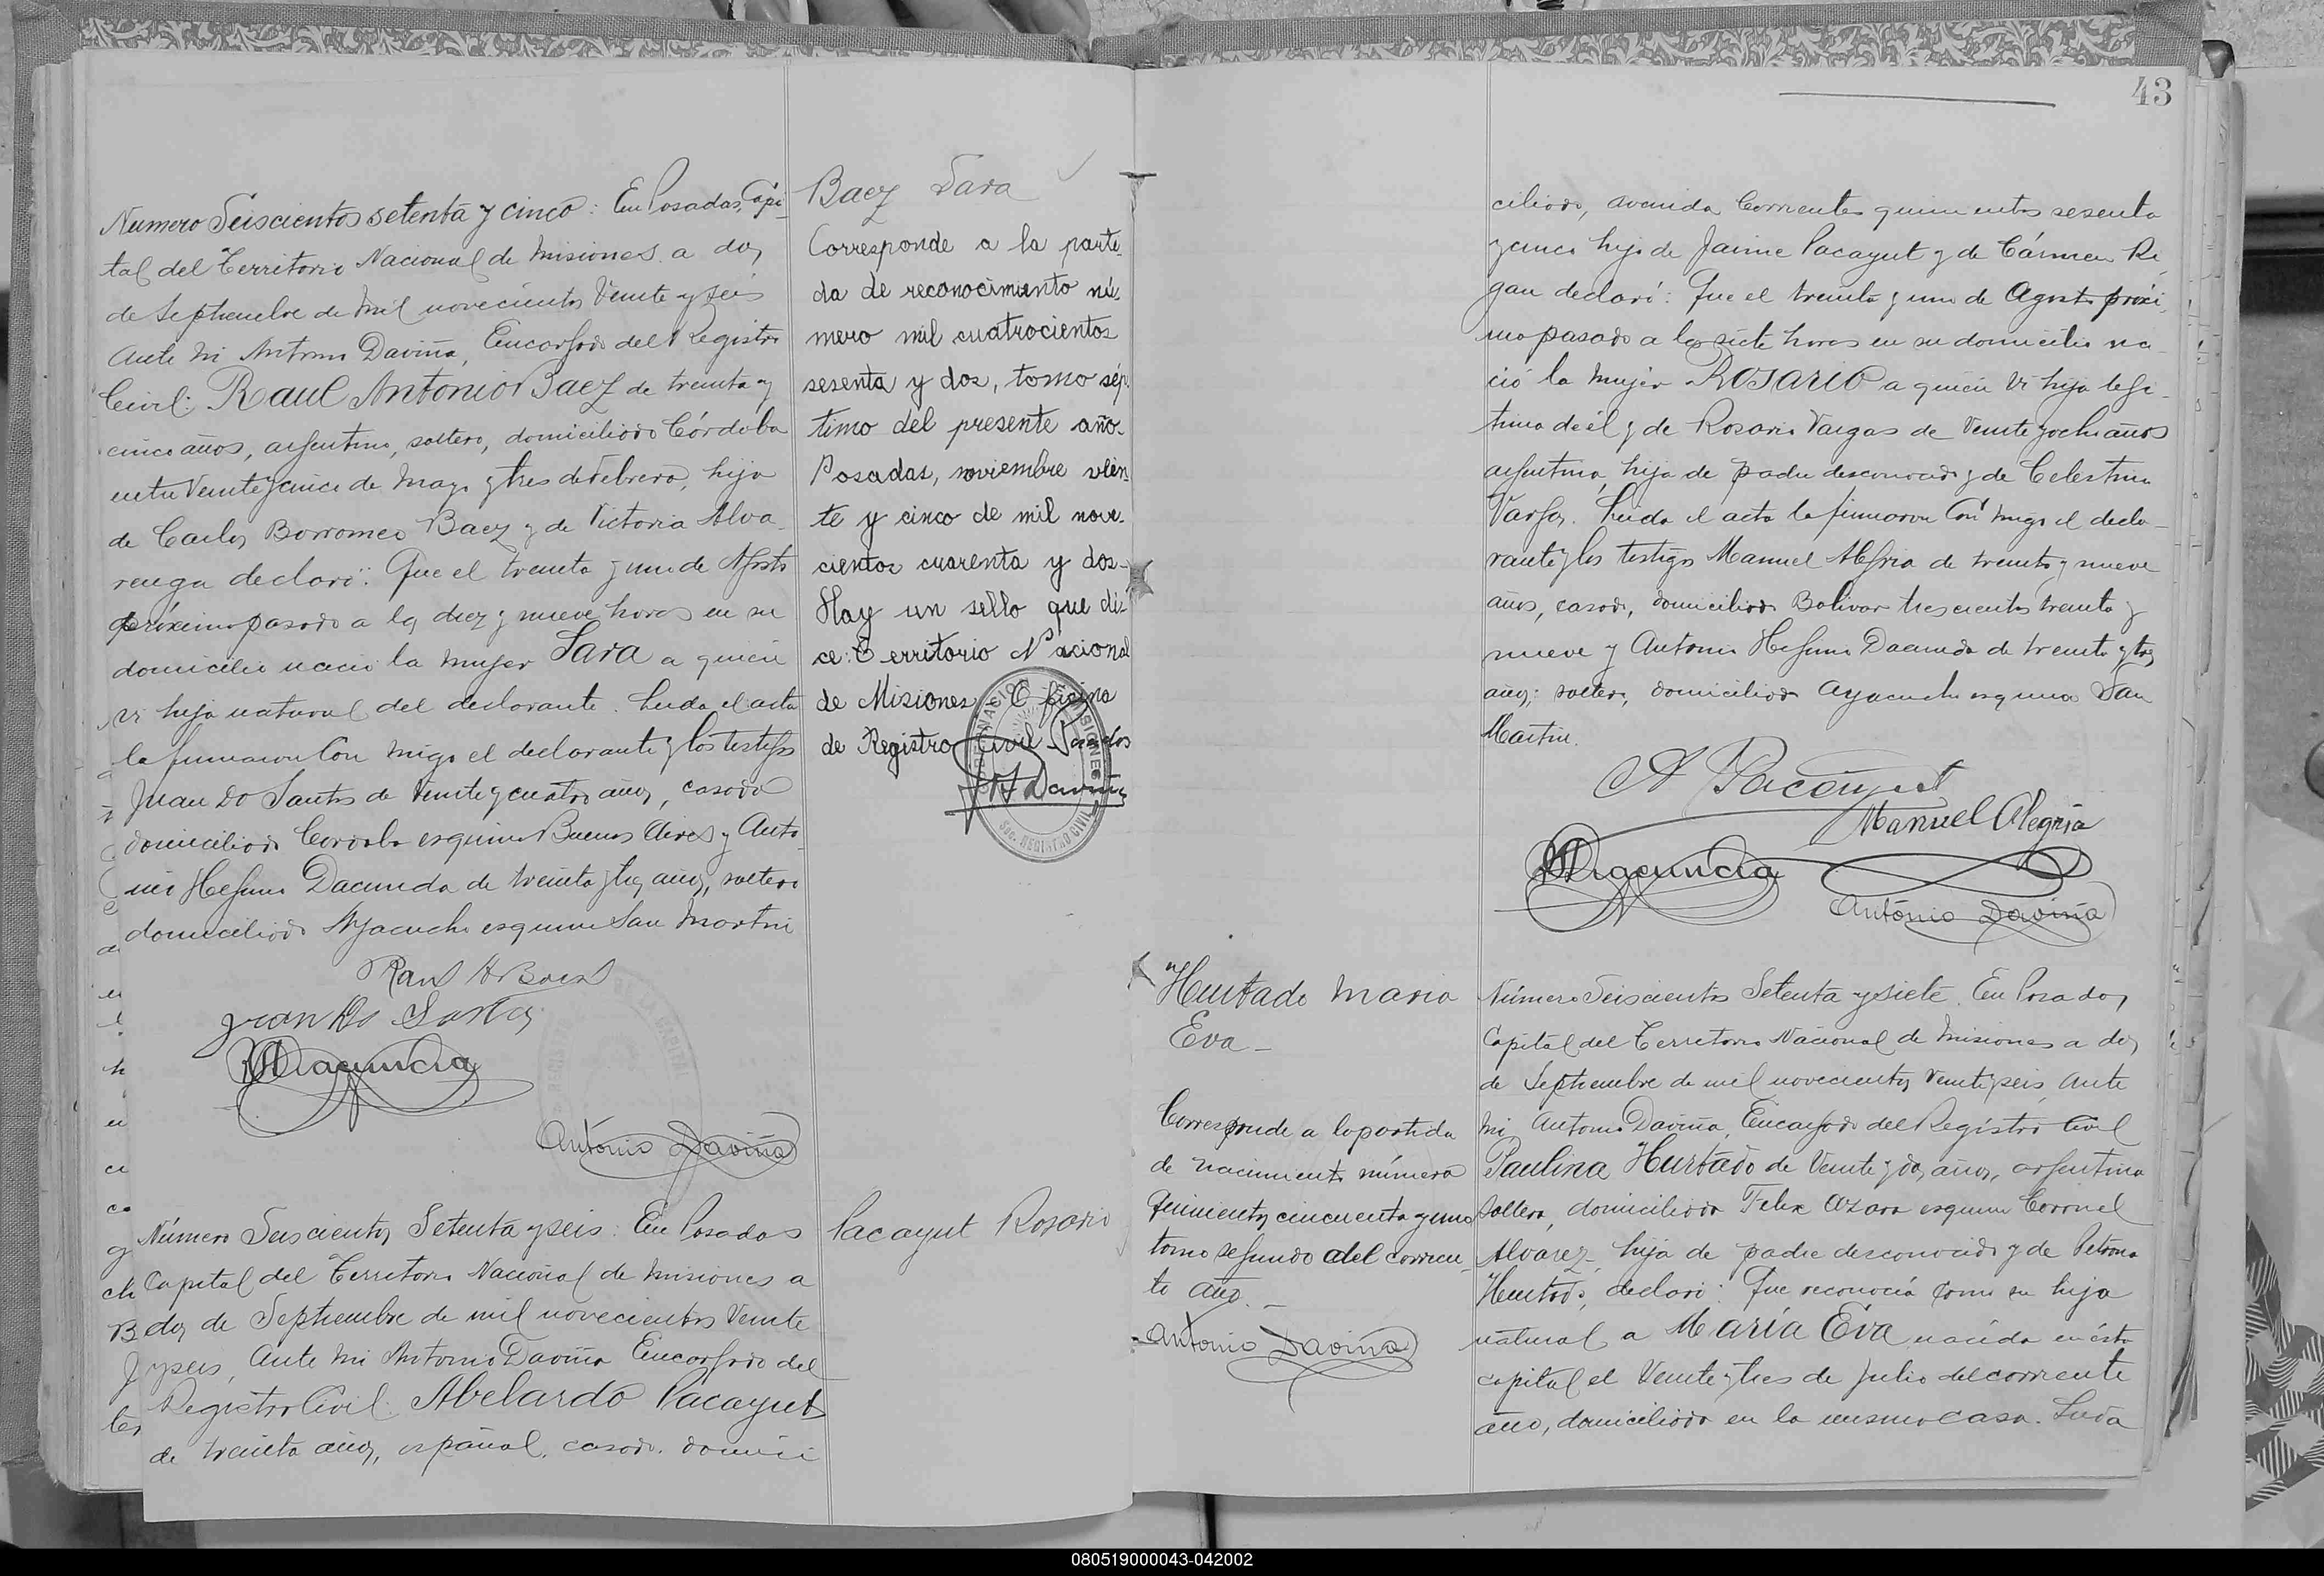 43
Numero Seiscientos setenta y cinco: En Posadas, Capi-
tal del Territorio Nacional de Misiones a dos
de Septiembre de mil novecientos veinte y seis
Ante mi Antonio Daviña, Encargado del Registro
Civil: Raul Antonio Baez de treinta y
cinco años, argentino, soltero, domiciliado Córdoba
entre Veinte y cinco de Mayo y tres de Febrero, hijo
de Carlos Borromeo Baez y de Victoria Alva-
renga declaró: Que el treinta y uno de Agosto
próximo pasado a las diez y nueve horas en su
domicilio nació la mujer Sara a quien
vi hija natural del declarante. Leida el acta
la firmaron conmigo el declarante y los testigos
Juan Do Santos de veinte y cuatro años, casado
domiciliado Cordoba esquina Buenos Aires y Anto-
nio Dacunda de treinta y tres años, soltero
domiciliado Ayacucho esquina San Martin
Raul A Baez
Juan Do Santos
Dacunda
Antonio Daviña
Baez Sara
Corresponde a la parti-
da de reconocimiento nú-
mero mil cuatrocientos
sesenta y dos, tomo sép-
timo del presente año.
Posadas, noviembre vein-
te y cinco de mil nove-
cientos cuarenta y dos-
Hay un sello que di-
ce: Territorio Nacional
de Misiones Oficina
de Registro Civil Posadas
A Daviña
Sec. REGISTRO CIVIL
Número Seiscientos Setenta y seis: En Posadas
Capital del Territorio Nacional de Misiones a
dos de Septiembre de mil novecientos Veinte
y seis, Ante mi Antonio Daviña Encargado del
Registro Civil: Abelardo Pacayut
de treinta años, español, casado, domici
Pacayut Rosario
ciliado, avenida Corrientes quinientos sesenta
y cinco hijo de Jaime Pacayut y de Cármen Ri
gau declaró: Que el treinta y uno de Agosto próxi-
mo pasado a las siete horas en su domicilio na-
ció la mujer ROSARIO a quien vi hija legi-
tima de él y de Rosario Vargas de Veinte y ocho años
argentina, hija de padre desconocido y de Celestina
Vargas. Leida el acta la firmaron conmigo el decla-
rante y los testigos Manuel Alegria de treinta y nueve
años, casado, domiciliado Bolivar trescientos treinta y
nueve y Antonio Dacunda de treinta y tres
años; soltero, domiciliado Ayacucho esquina San
Martin.
A Pacayut
Manuel Alegria
Dacunda
Antonio Daviña
Hurtado Maria
Eva-
Corresponde a la partida
de nacimiento número
quinientos cincuenta y uno
tomo segundo del corrien-
te año.-
Antonio Daviña
Número Seiscientos Setenta y siete. En Posadas
Capital del Territorio Nacional de Misiones a dos
de Septiembre de mil novecientos veinte y seis, Ante
mi, Antonio Daviña, Encargado del Registro Civil
Paulina Hurtado de Veinte y dos años, argentina
soltera, domiciliada Felix Azara esquina Coronel
Alvarez-, hija de padre desconocido y de Petrona
Hurtado, declaró: Que reconocía como su hija
natural a María Eva nacida en ésta
capital el Veinte y tres de Julio del corriente
año, domiciliada en la misma casa. Leida
080519000043-042002